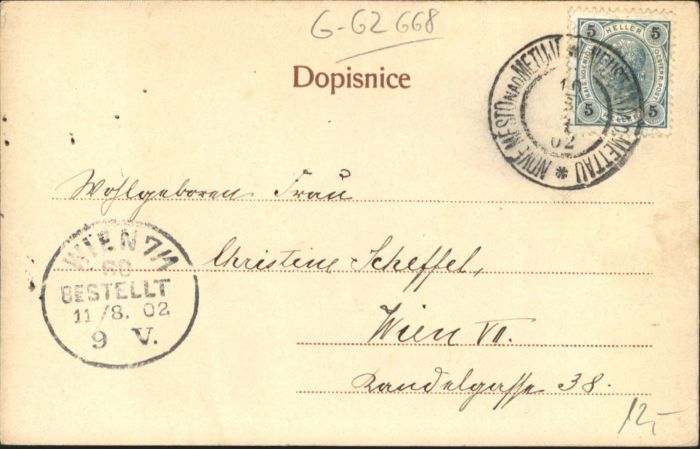 G-G2 668
5 HELLER 5
5 5
Dopisnice
NOVÉ MĚSTO NAD METUJÍ * NEUSTADT A/D METTAU *
10
8
02
Wohlgeboren Frau
Christine Scheffel,
Wien VII.
Kandelgasse 38.
WIEN 7/1
60
BESTELLT
11/8. 02
9 V.
12,-